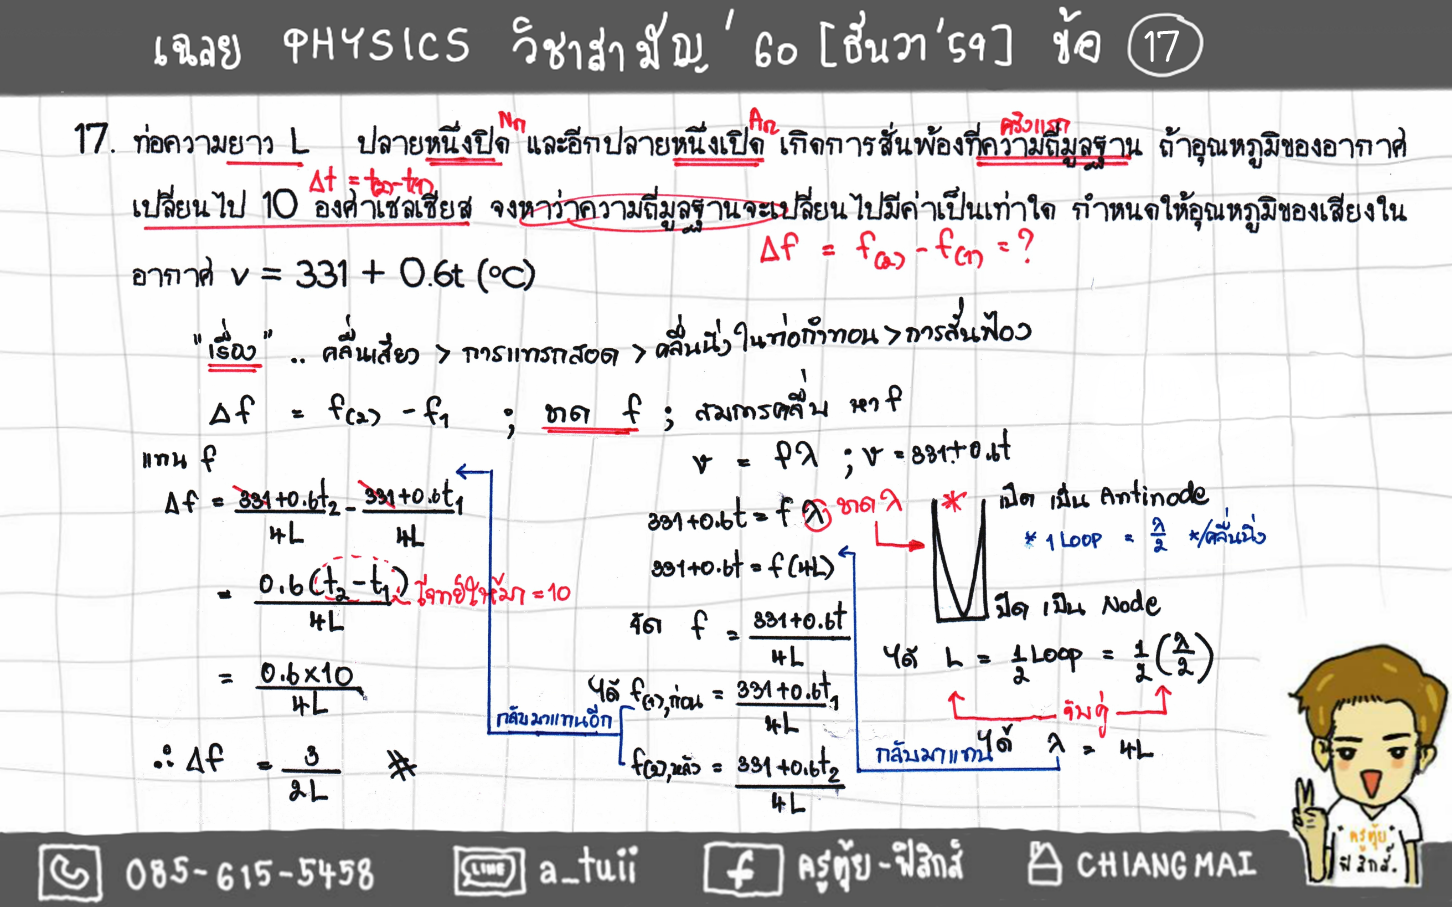 เฉลย PHYSICS วิชาสามัญ' 60 [ธันวา'59] ข้อ 17
17. ท่อความยาว L ปลายหนึ่งปิด และอีกปลายหนึ่งเปิด เกิดการสั่นพ้องที่ความถี่มูลฐาน ถ้าอุณหภูมิของอากาศ
ครั้งแรก
Δt = t(2) - t(1)
เปลี่ยนไป 10 องศาเซลเซียส จงหาว่าความถี่มูลฐานจะเปลี่ยนไปมีค่าเป็นเท่าใด กำหนดให้อุณหภูมิของเสียงใน
Δf = f(2) - f(1) = ?
อากาศ v = 331 + 0.6t (°C)
"เรื่อง" .. คลื่นเสียง > การแทรกสอด > คลื่นนิ่งในท่อกำทอน > การสั่นพ้อง
Δf = f(2) - f1 ; ขาด f ; สมการคลื่น หา f
แทน f
Δf = 331+0.6t2/4L - 331+0.6t1/4L
= 0.6(t2 - t1)/4L โจทย์ให้มา = 10
= 0.6×10/4L
∴ Δf = 3/2L #
v = fλ ; v = 331+0.6t
331+0.6t = fλ ขาด λ
331+0.6t = f(4L)
จัด f = 331+0.6t/4L
ได้ f(1),ก่อน = 331+0.6t1/4L
f(2),หลัง = 331+0.6t2/4L
กลับมาแทนอีก
* เปิด เป็น Antinode
* 1 Loop = λ/2 */คลื่นนิ่ง
ปิด เป็น Node
ได้ L = 1/2 Loop = 1/2(λ/2)
จับคู่
ได้ λ = 4L
กลับมาแทน
"ครูตุ้ย"
ฟิสิกส์.
085-615-5458
LINE a_tuii
f ครูตุ้ย-ฟิสิกส์
CHIANGMAI